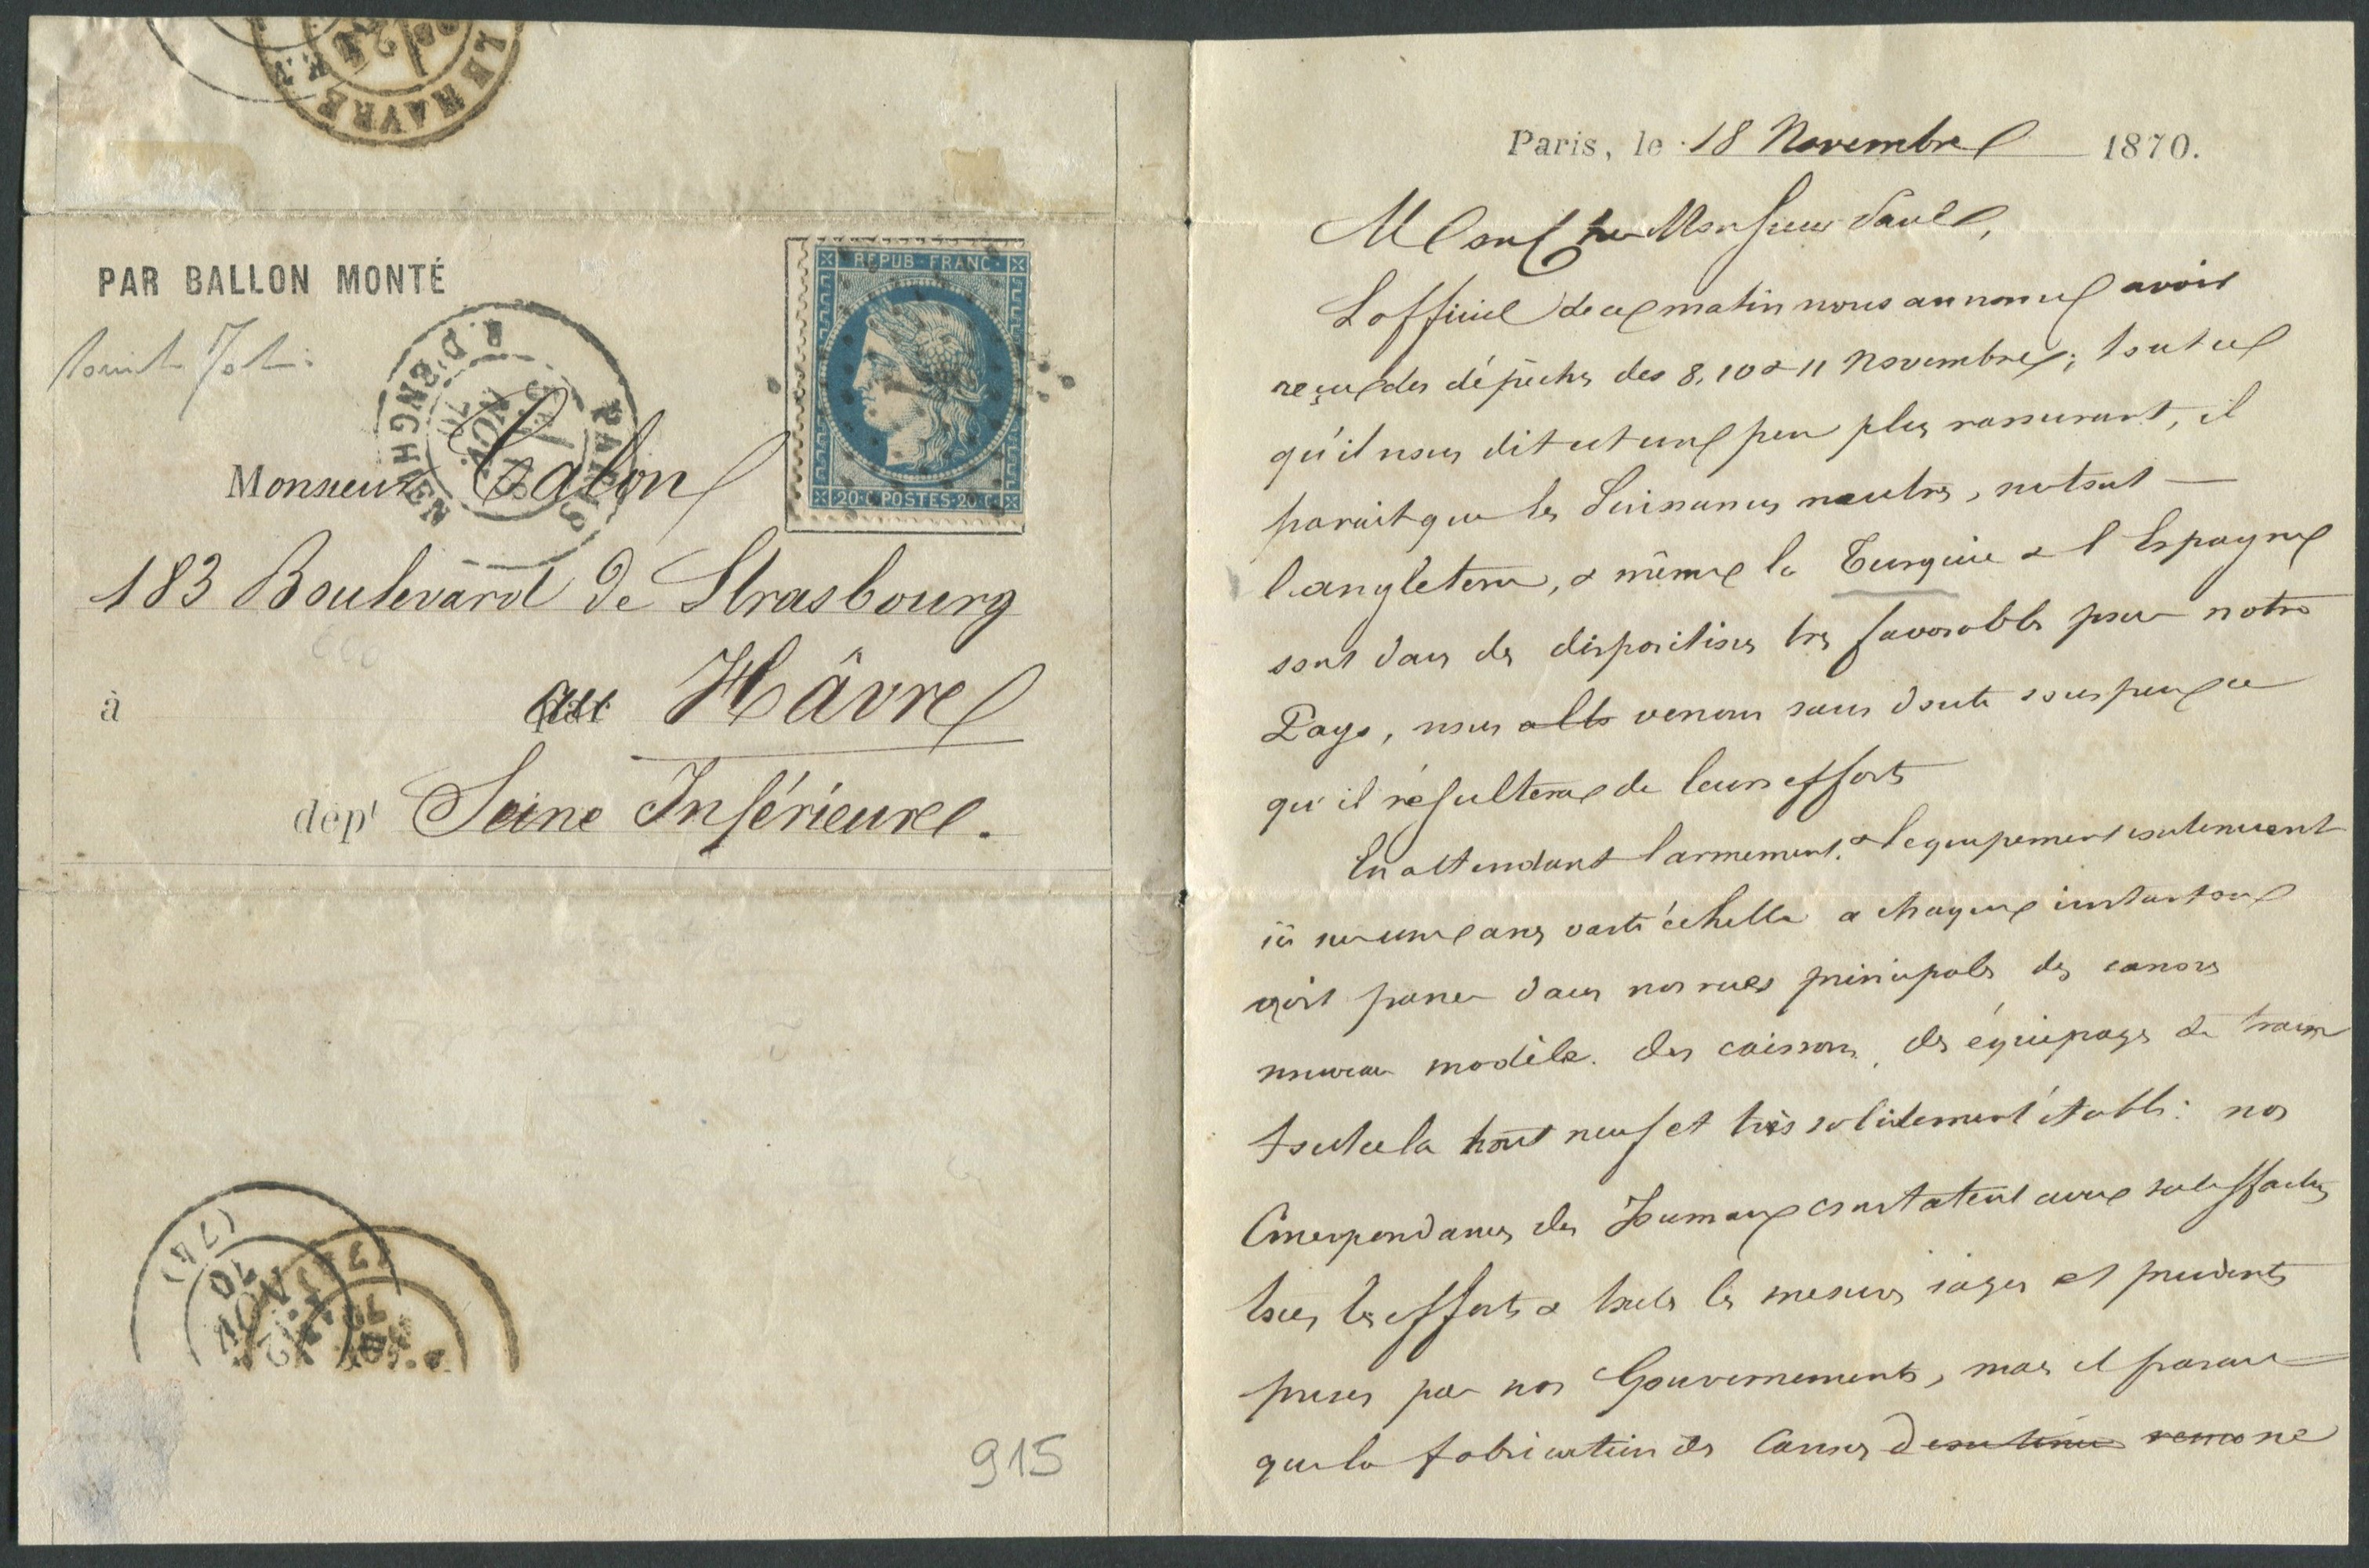 LE HAVRE
PAR BALLON MONTÉ
REPUB · FRANC ·
20 · C · POSTES · 20 · C
PARIS
R. D'ENGHIEN
NOV.
70
Monsieur Calon
183 Boulevard de Strasbourg
à au Hâvre
dépt Seine Inférieure.
70
NOV
915
Paris, le 18 Novembre 1870.
Mon cher Monsieur Paul,
L'officiel de ce matin nous annonce avoir
reçu des dépêches des 8, 10 & 11 Novembre; tout ce
qu'il nous dit est un peu plus rassurant, il
parait que les Puissances neutres, surtout
l'angleterre, & même la Turquie & l'Espagne
sont dans des dispositions très favorables pour notre
Pays, nous verrons sans doute sous peu ce
qu'il résultera de leurs efforts
En attendant l'armement & l'equipement continuent
ici sur une assez vaste échelle a chaque instant on
voit passer dans nos rues principales des canons
nouveau modèle. des caissons, des équipages de train
tout cela tout neuf et très solidement établi: nos
Correspondances des Journaux constatent avec satisfaction
tous les efforts & toutes les mesures sages et prudentes
prises par nos Gouvernements, mais il parait
que la fabrication des Canons ne